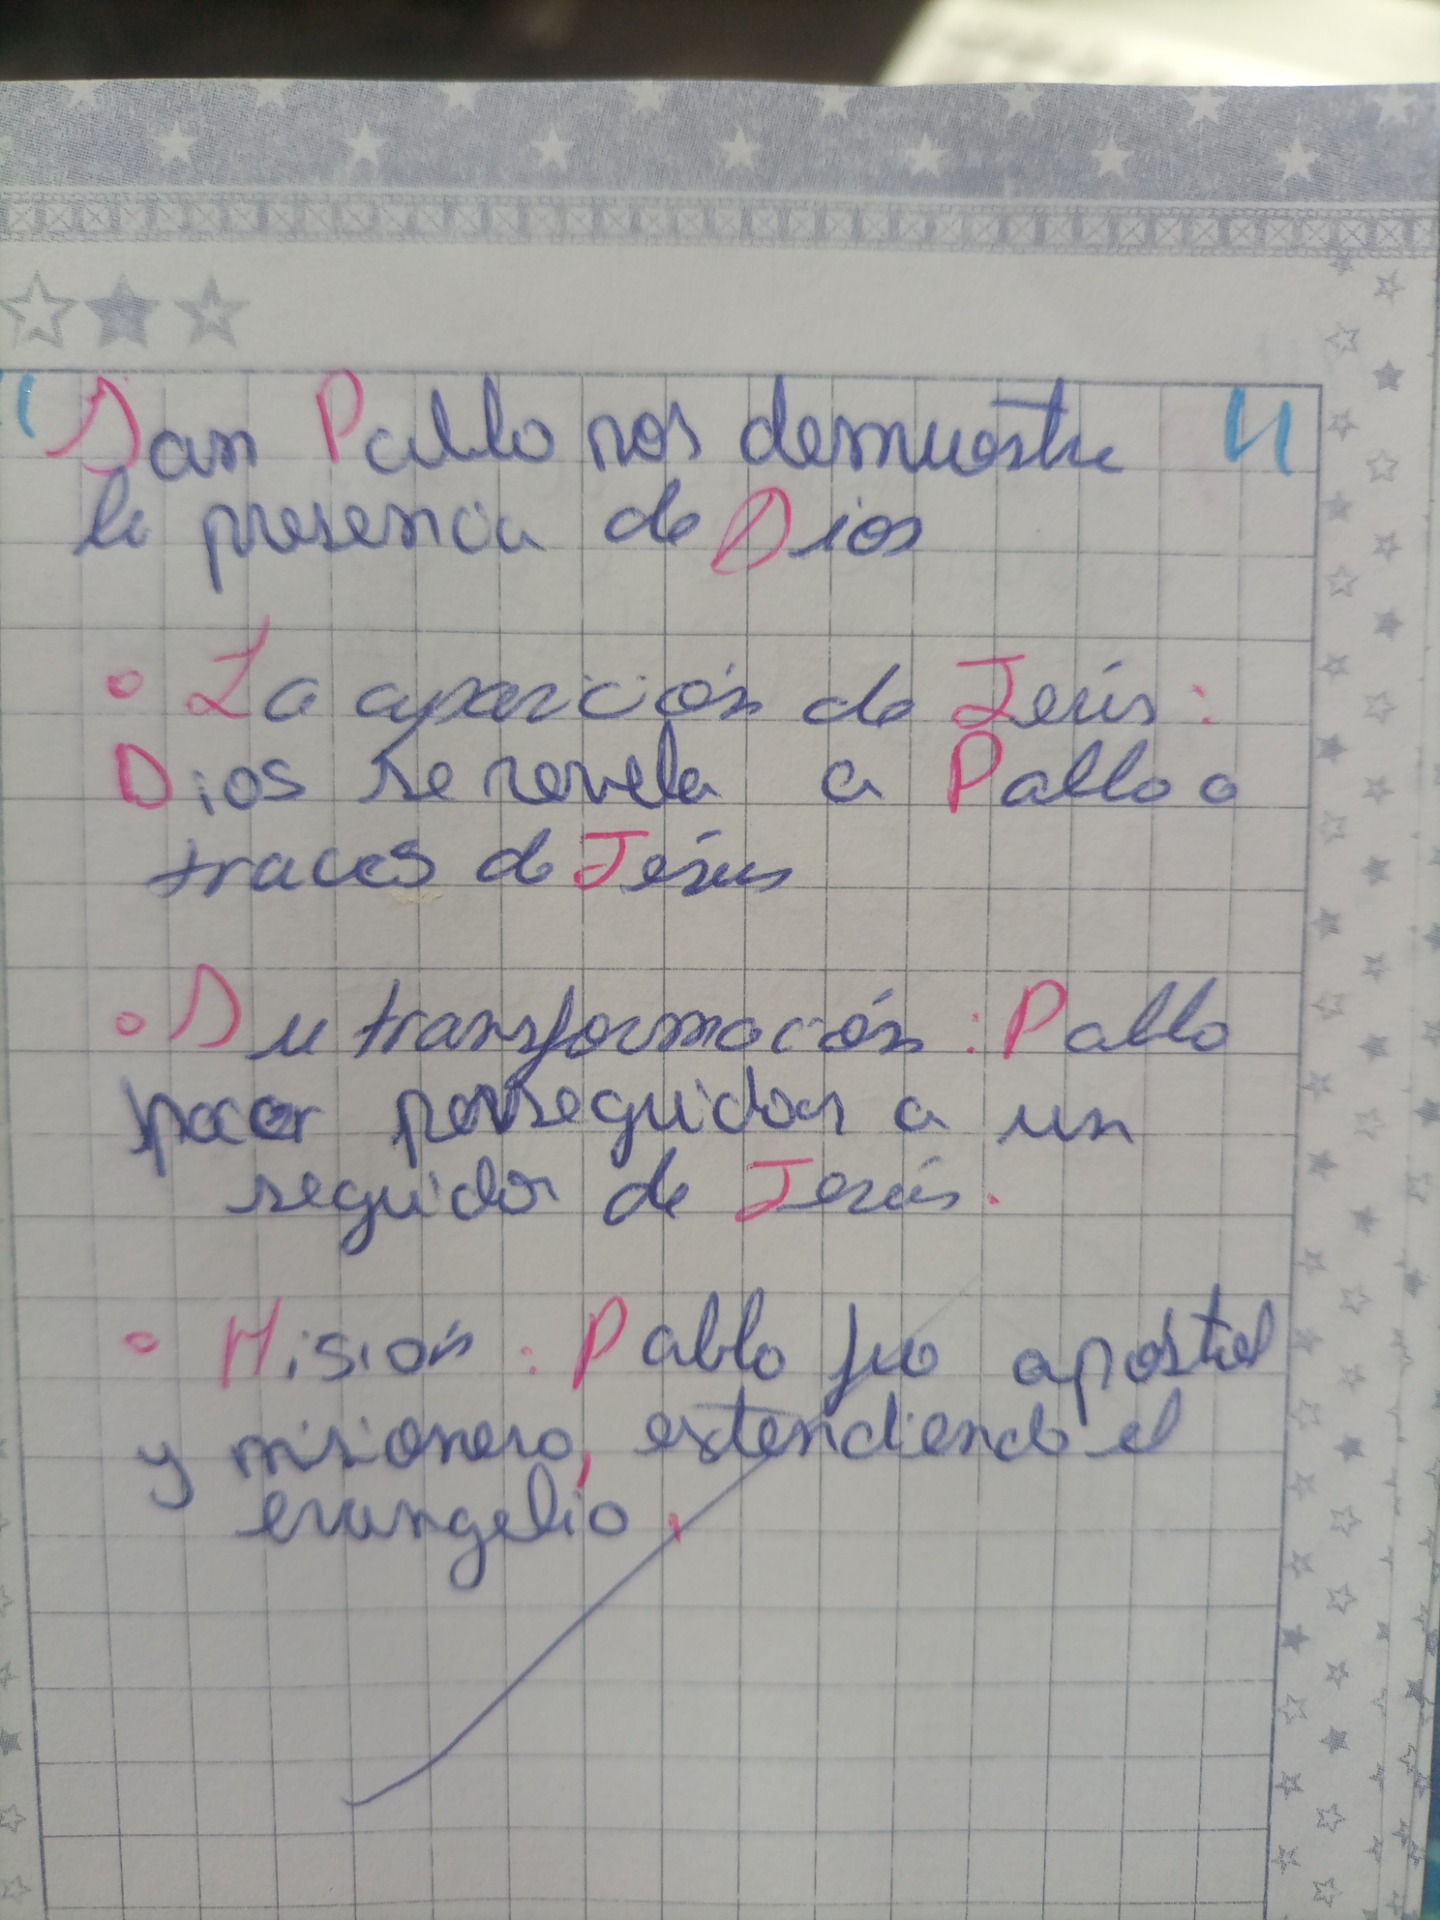 "San Pablo nos demuestra"
la presencia de Dios
• La aparición de Jesús:
Dios se revela a Pablo a
traces de Jesús
• Su transformación: Pablo
perseguidor a un
seguidor de Jesús.
• Misión: Pablo fue apostol
y misionero, extendiendo el
evangelio.